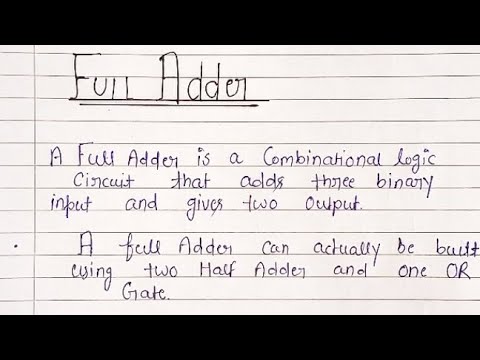 Full Adder
A Full Adder is a Combinational logic
Circuit that adds three binary
input and gives two output.
A full Adder can actually be built
using two Half Adder and one OR
Gate.